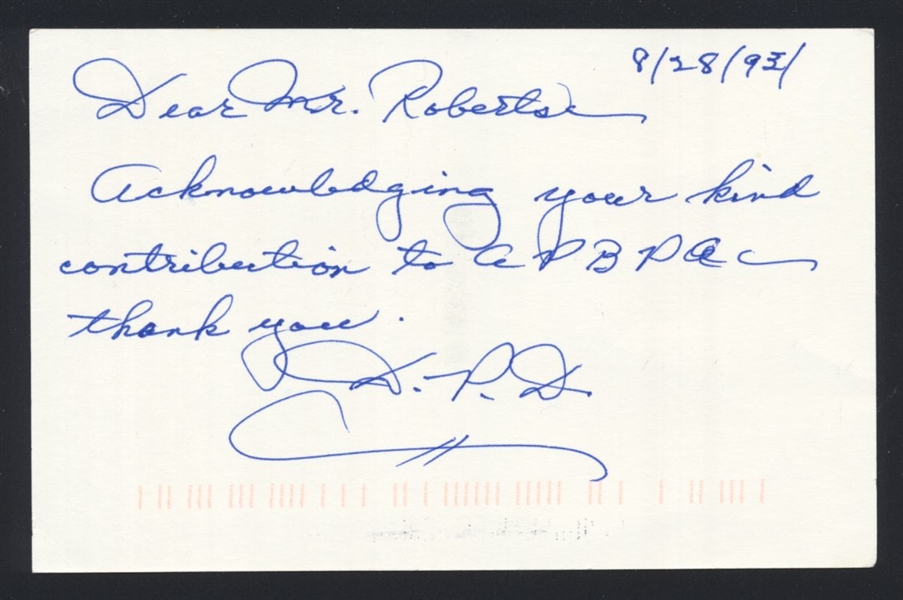 8/28/93/
Dear Mr. Roberts
Acknowledging your kind
contribution to APBPAC
thank you.